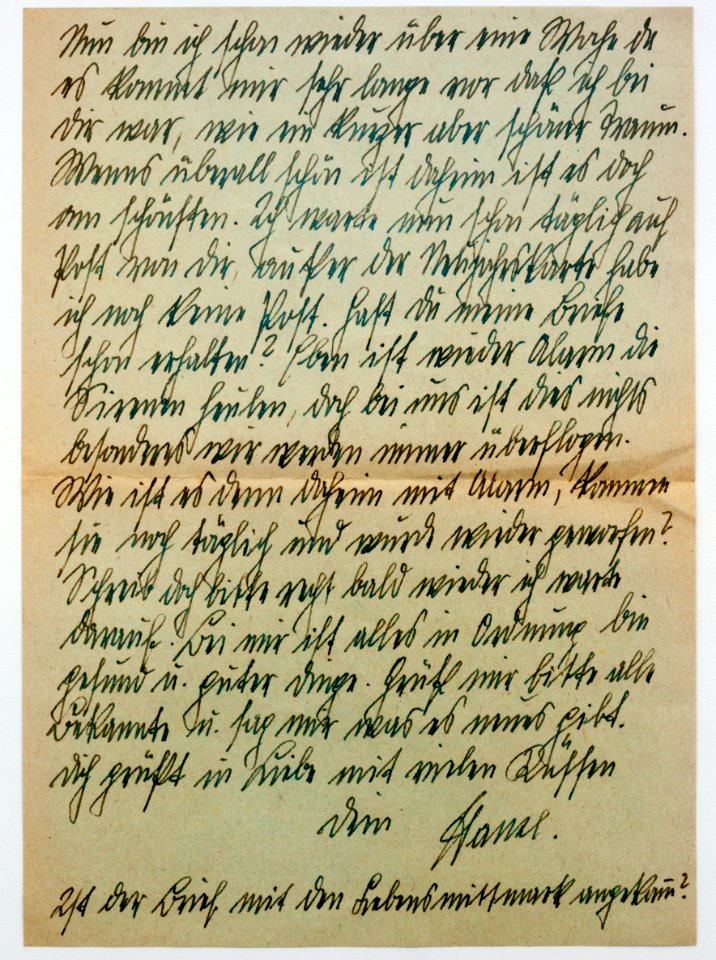 Nun bin ich schon wieder über eine Woche da
es kommt mir sehr lange vor daß ich bei
dir war, wie ein kurzer aber schöner Traum.
Wenns überall schön ist daheim ist es doch
am schönsten. Ich warte nun schon täglich auf
Post von dir, außer der Neujahrskarte habe
ich noch keine Post. Hast du meine Briefe
schon erhalten? Eben ist wieder Alarm die
Sirenen heulen, doch bei uns ist dies nichts
besonderes wir werden immer überflogen.
Wie ist es denn daheim mit Alarm, kommen
sie noch täglich und wurde wieder geworfen?
Schreib doch bitte recht bald wieder ich warte
darauf. Bei mir ist alles in Ordnung bin
gesund u. guter dinge. Grüß mir bitte alle
Bekannte u. sag mir was es neues gibt.
dich grüßt in Liebe mit vielen Küssen
dein Hansl.
Ist der Brief mit den Lebensmittmark angekomm?